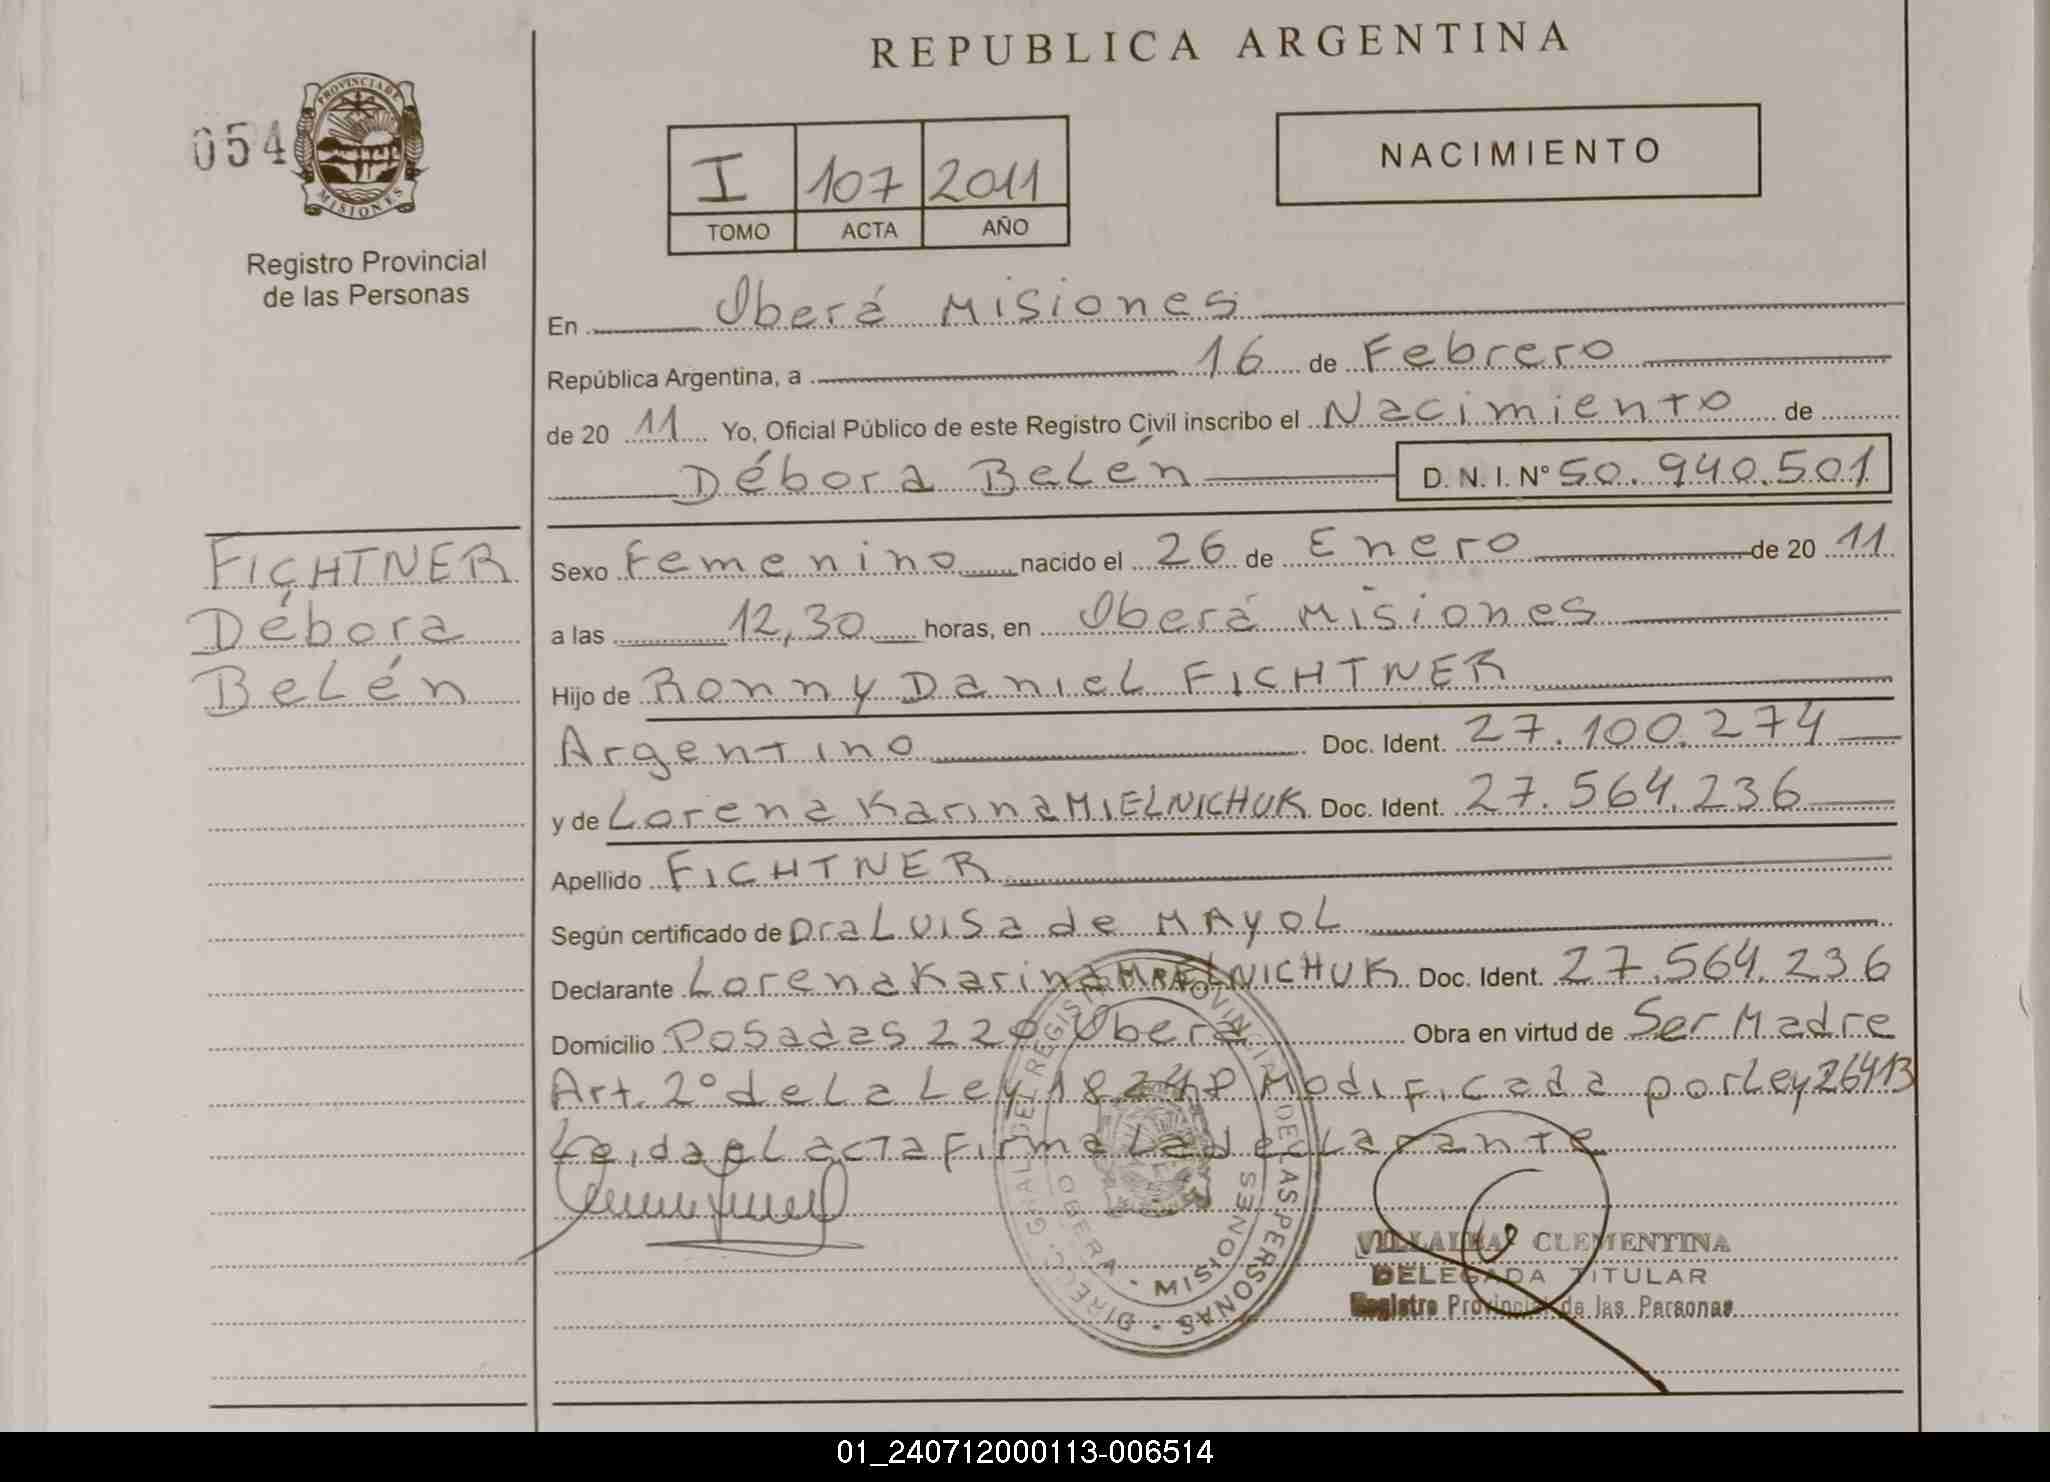 REPUBLICA ARGENTINA
054
PROVINCIA DE
MISIONES
Registro Provincial
de las Personas
I 107 2011
TOMO ACTA AÑO
NACIMIENTO
En Oberá Misiones
República Argentina, a 16 de Febrero
de 20 11 Yo, Oficial Público de este Registro Civil inscribo el Nacimiento de
Débora Belén D. N. I. N° 50.940.501
FICHTNER
Débora
Belén
Sexo Femenino nacido el 26 de Enero de 20 11
a las 12,30 horas, en Oberá Misiones
Hijo de Ronny Daniel FICHTNER
Argentino Doc. Ident. 27.100.274
y de Lorena Karina MIELNICHUK Doc. Ident. 27.564.236
Apellido FICHTNER
Según certificado de Dra Luisa de MAYOL
Declarante Lorena Karina MIELNICHUK Doc. Ident. 27.564.236
Domicilio Posadas 220 Oberá Obra en virtud de Ser Madre
Art. 2° de La Ley 18.248 Modificada por Ley 26413
Leida el acta Firma La declarante
DIRECC. GRAL DEL REGISTRO PROVINCIAL DE LAS PERSONAS
OBERA - MISIONES
VILLALBA CLEMENTINA
DELEGADA TITULAR
Registro Provincial de las Personas
01_240712000113-006514